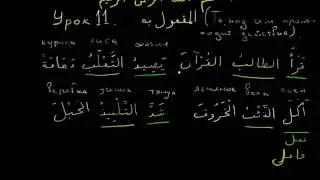 Урок 11. المفعول به (То, над чем проис-
ходит действие).
курица лиса
قَرَأَ الطَّالِبُ الْقُرْآنَ. يَصِيدُ الثَّعْلَبُ دَجَاجَةً
верёвка тянул ягнёнок волк съел
أَكَلَ الذِّئْبُ الْخَرُوفَ شَدَّ التِّلْمِيذُ الْحَبْلَ
فعل
فاعل